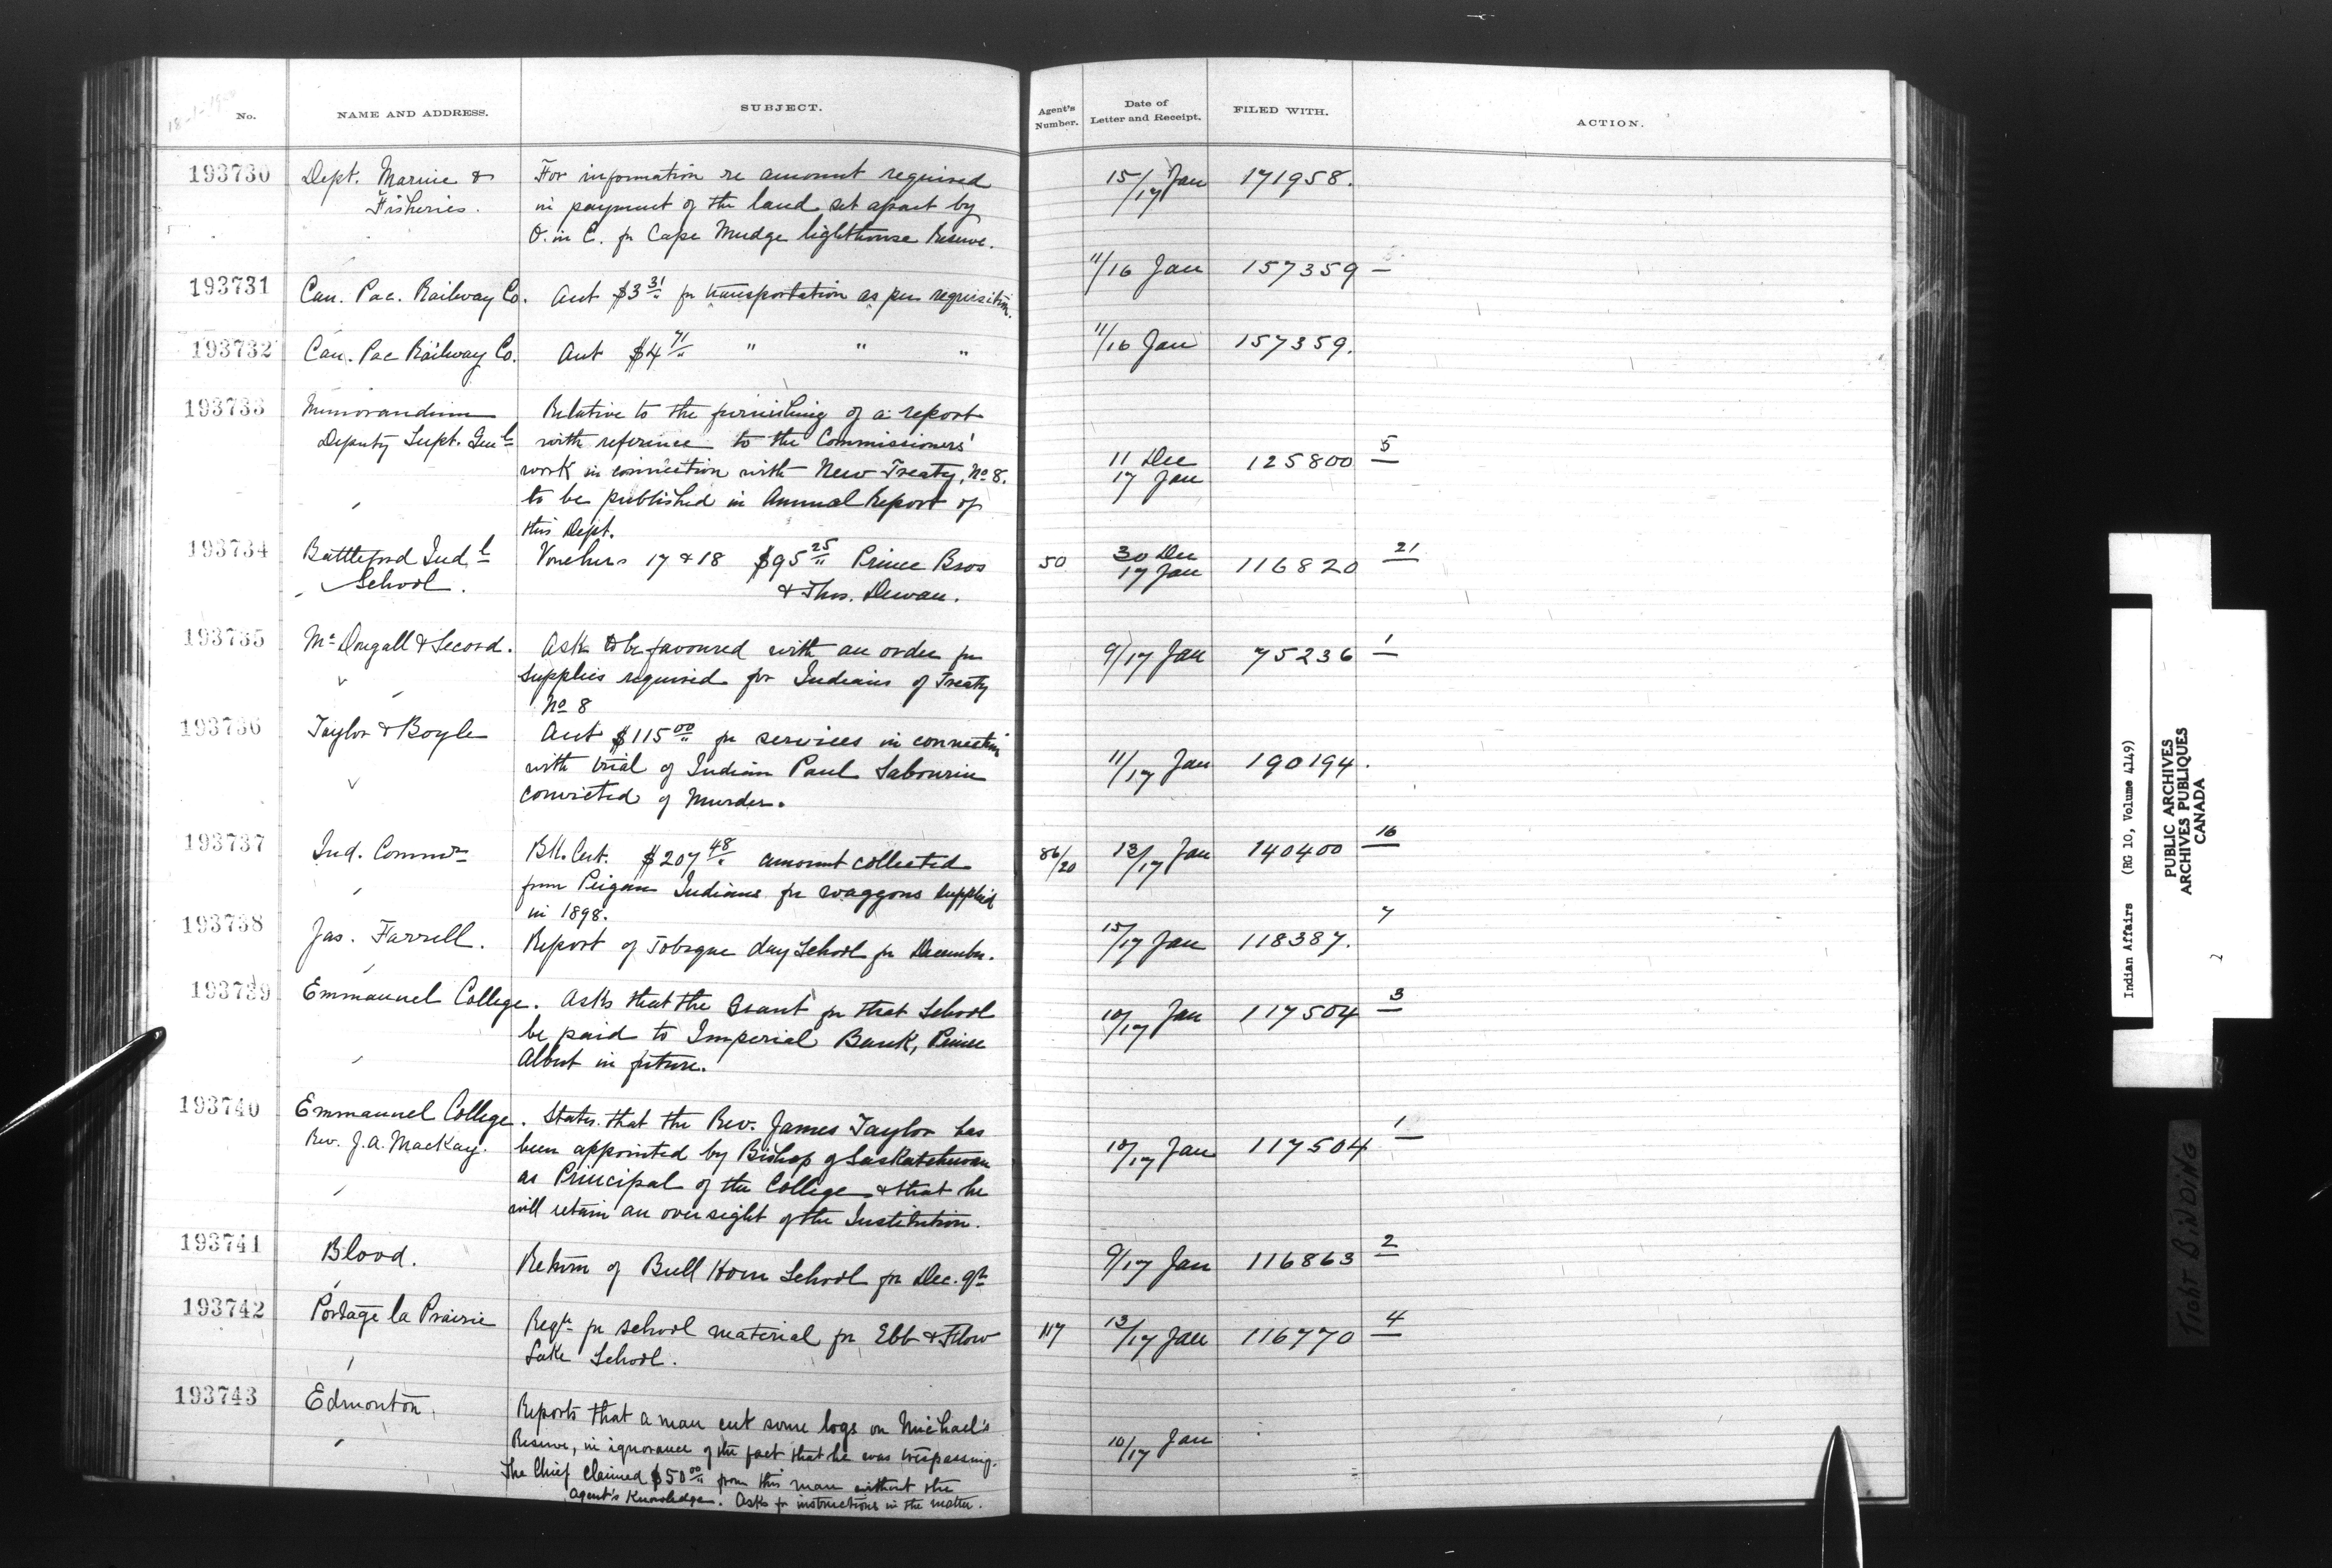 18-1-1900
No. NAME AND ADDRESS. SUBJECT. Agent's Number. Date of Letter and Receipt. FILED WITH. ACTION.
193730 Dept. Marine & For information re amount required 15/17 Jan 171958.
Fisheries. in payment of the land set apart by
O. in C. for Cape Mudge lighthouse Reserve.
193731 Can. Pac. Railway Co. Act $3 31/" for transportation as per requisition. 11/16 Jan 157359 —
193732 Can. Pac Railway Co. Act $4 71/" " " " 11/16 Jan 157359.
193733 Memorandum Relative to the furnishing of a report
Deputy Supt. Genl with reference to the Commissioners' 11 Dec 125800 5
work in connection with New Treaty, No 8. 17 Jan
to be published in Annual Report of
this Dept.
193734 Battleford Indl Vouchers 17 & 18 $95 25/" Prince Bros 50 30 Dec 116820 21
School. & Thos. Dewan. 17 Jan
193735 McDougall & Secord. Ask to be favoured with an order for 9/17 Jan 75236 1
supplies required for Indians of Treaty
No 8
193736 Taylor & Boyle Act $115 00/" for services in connection
with trial of Indian Paul Sabourin 11/17 Jan 190194.
convicted of Murder.
193737 Ind. Commr Bk. Cert. $207 48/" amount collected 86/20 13/17 Jan 140400 16
from Peigan Indians for waggons supplied
in 1898.
193738 Jas. Farrell. Report of Tobique day School for December. 15/17 Jan 118387. 7
193739 Emmanuel College. Asks that the Grant for that School 10/17 Jan 117504 3
be paid to Imperial Bank, Prince
Albert in future.
193740 Emmanuel College. States that the Rev. James Taylor has
Rev. J.A. MacKay. been appointed by Bishop of Saskatchewan 10/17 Jan 117504 1
as Principal of the College & that he
will retain an oversight of the Institution.
193741 Blood. Return of Bull Horn School for Dec. qr 9/17 Jan 116863 2
193742 Portage la Prairie Reqn for school material for Ebb & Flow 117 13/17 Jan 116770 4
Lake School.
193743 Edmonton. Reports that a man cut some logs on Michael's
Reserve, in ignorance of the fact that he was trespassing. 10/17 Jan
The Chief claimed $50 00/" from this man without the
Agent's Knowledge. Asks for instructions in the matter.
Indian Affairs (RG 10, Volume 4149)
PUBLIC ARCHIVES
ARCHIVES PUBLIQUES
CANADA
TIGHT BINDING